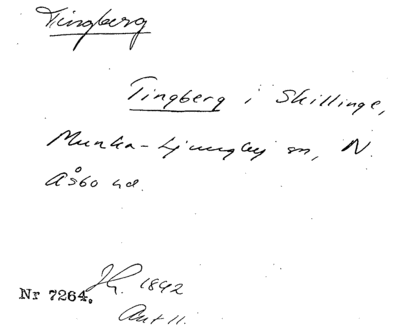 Tingberg
Tingberg i Skillinge,
Munka-Ljungby sn, N.
Åsbo hd.
Nr 7264. 1842
Ant 11.